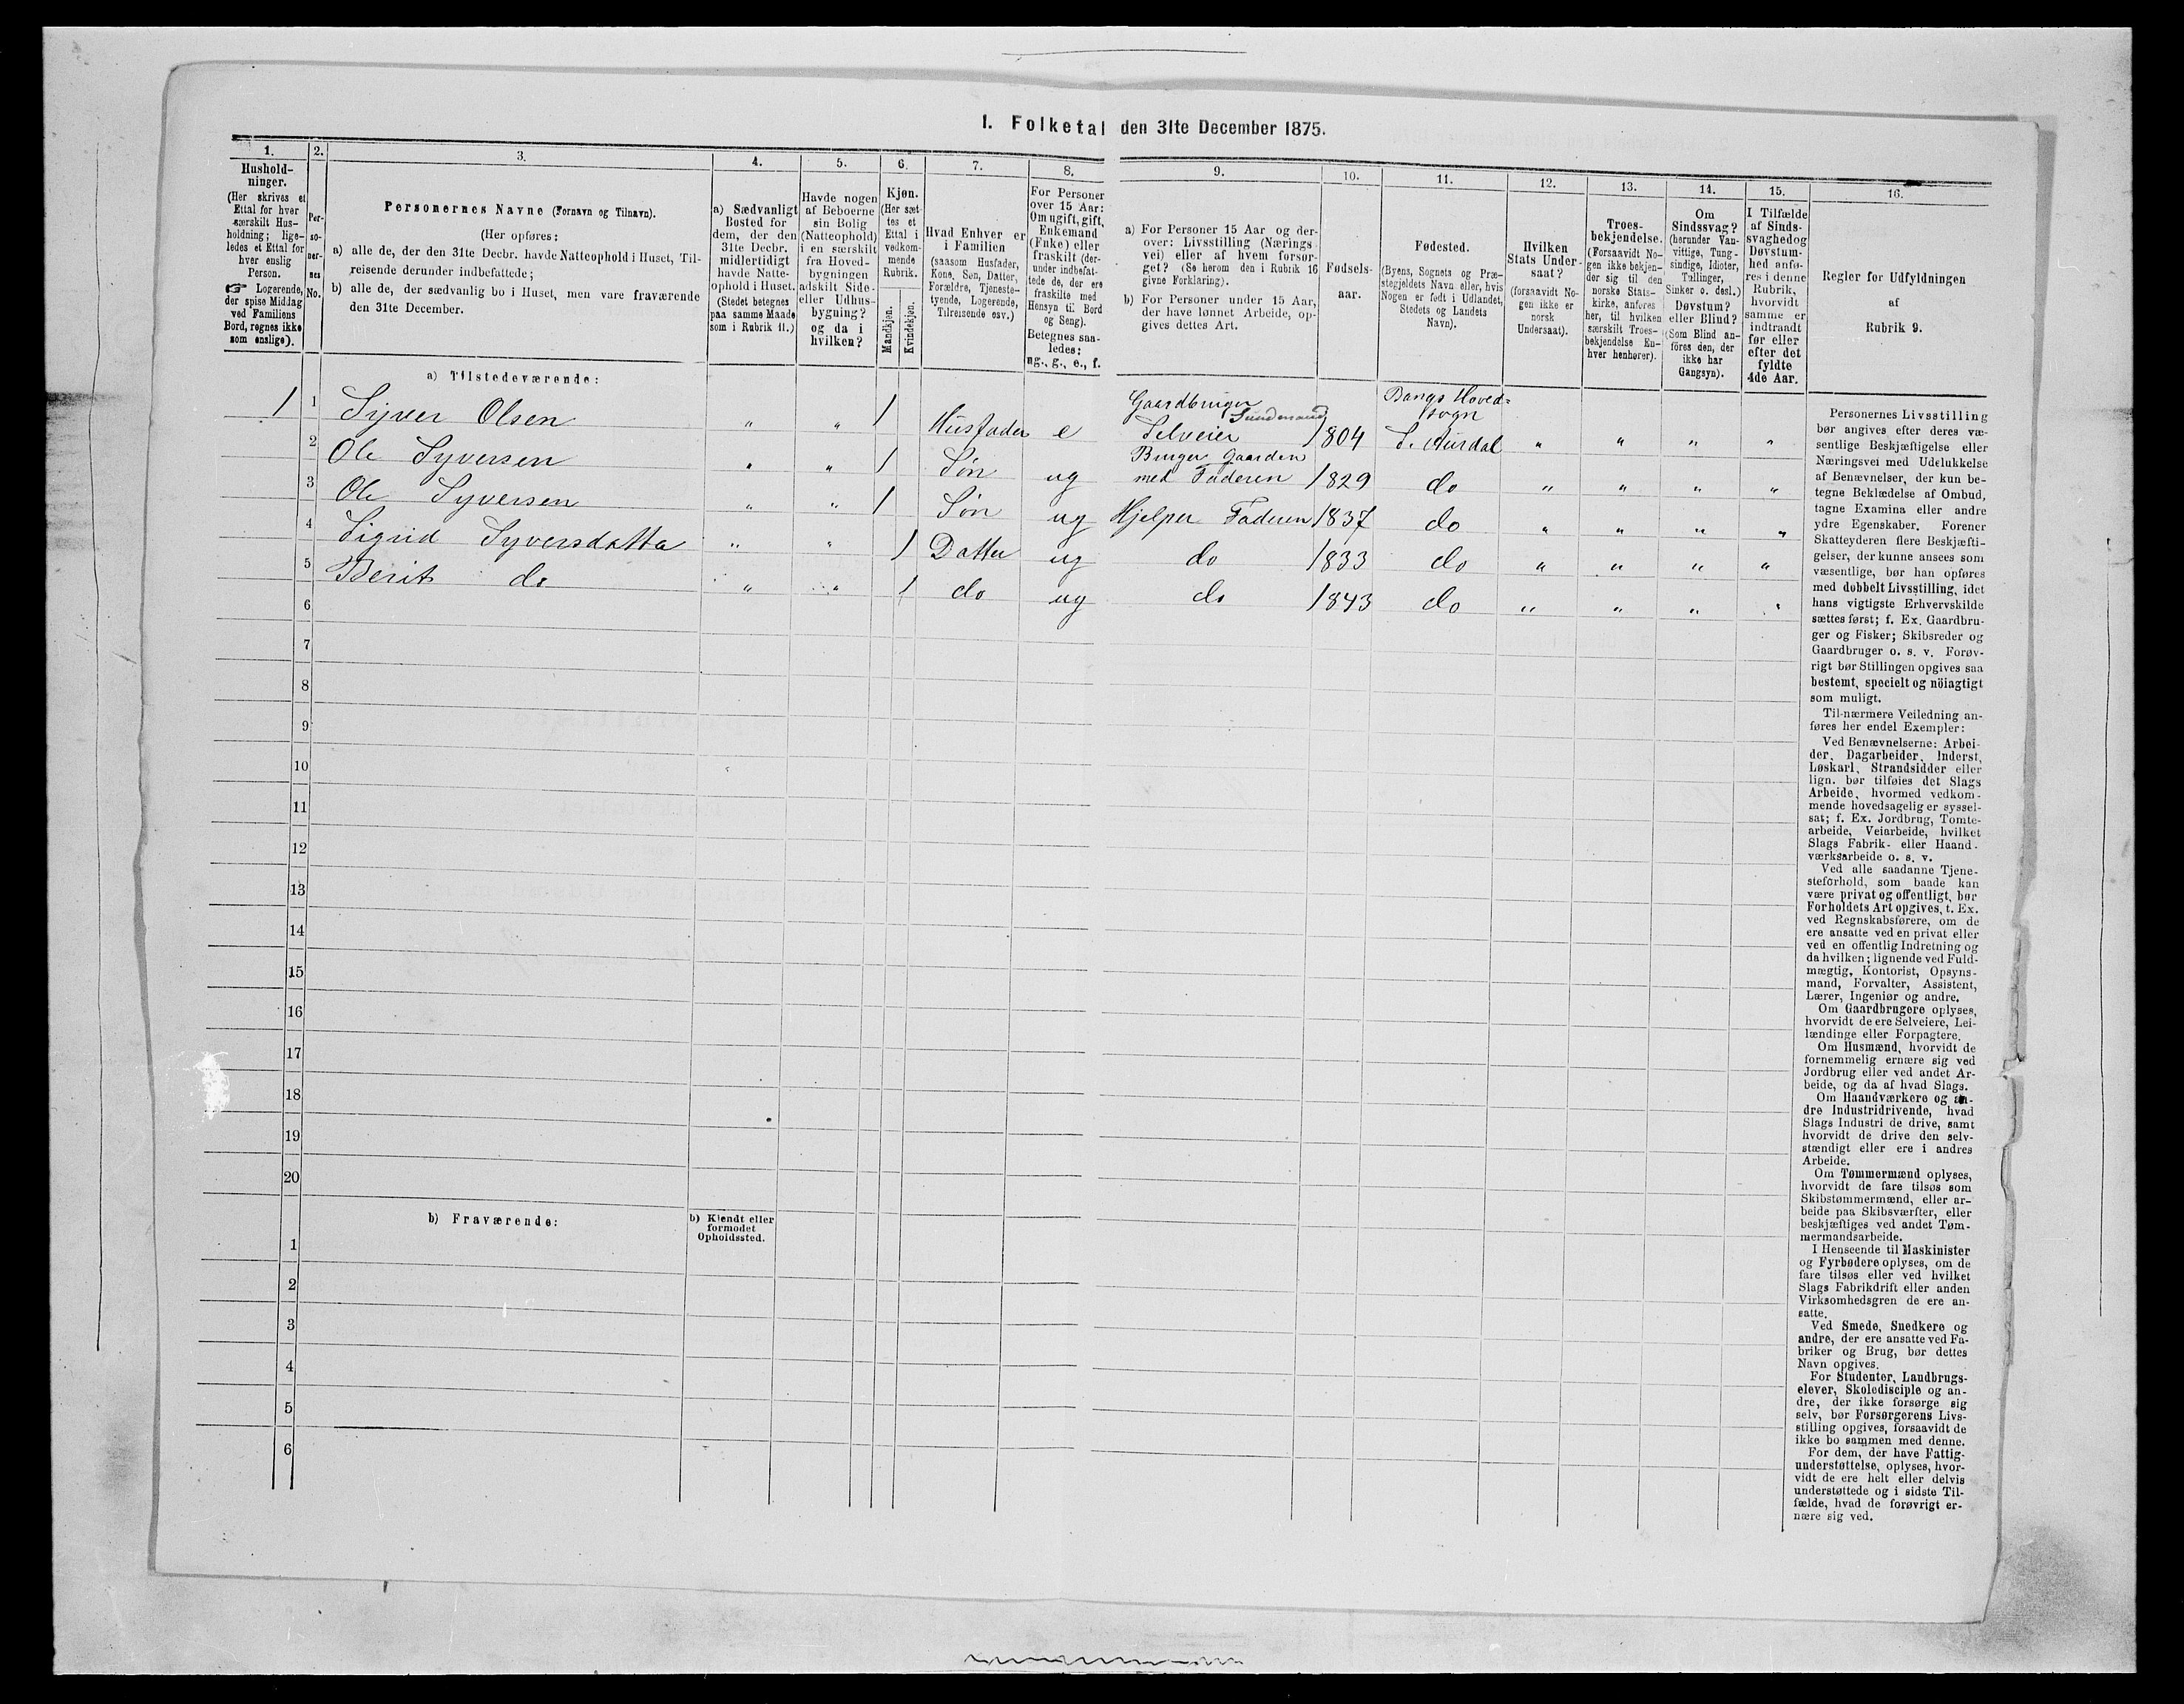 1. Folketal den 31te December 1875.
1.
Hushold-
ninger.
(Her skrives et
Ettal for hver
særskilt Hus-
holdning; lige-
ledes et Ettal for
hver enslig
Person.
☞ Logerende,
der spise Middag
ved Familiens
Bord, regnes ikke
som enslige).
2.
Per-
so-
ner-
nes
No.
3.
Personernes Navne (Fornavn og Tilnavn).
(Her opføres:
a) alle de, der den 31te Decbr. havde Natteophold i Huset, Til-
reisende derunder indbefattede;
b) alle de, der sædvanlig bo i Huset, men vare fraværende
den 31te December.
4.
a) Sædvanligt
Bosted for
dem, der den
31te Decbr.
midlertidigt
havde Natte-
ophold i Huset.
(Stedet betegnes
paa samme Maade
som i Rubrik 11.)
5.
Havde nogen
af Beboerne
sin Bolig
(Natteophold)
i en særskilt
fra Hoved-
bygningen
adskilt Side-
eller Udhus-
bygning?
og da i
hvilken?
6.
Kjøn.
(Her sæt-
tes et
Ettal i
vedkom-
mende
Rubrik.
Mandkjøn.
Kvindekjøn.
7.
Hvad Enhver er
i Familien
(saasom Husfader,
Kone, Søn, Datter,
Forældre, Tjeneste-
tyende, Logerende,
Tilreisende osv.)
8.
For Personer
over 15 Aar:
Om ugift, gift,
Enkemand
(Enke) eller
fraskilt (der-
under indbefat-
tede de, der ere
fraskilte med
Hensyn til Bord
og Seng).
Betegnes saa-
ledes:
ug., g., e., f.
9.
a) For Personer 15 Aar og der-
over: Livsstilling (Nærings-
vei) eller af hvem forsør-
get? (Se herom den i Rubrik 16
givne Forklaring).
b) For Personer under 15 Aar,
der have lønnet Arbeide, op-
gives dettes Art.
10.
Fødsels-
aar.
11.
Fødested.
(Byens, Sognets og Præ-
stegjeldets Navn eller, hvis
Nogen er født i Udlandet,
Stedets og Landets
Navn).
12.
Hvilken
Stats Under-
saat?
(forsaavidt No-
gen ikke er
norsk
Undersaat).
13.
Troes-
bekjendelse.
(Forsaavidt No-
gen ikke bekjen-
der sig til den
norske Stats-
kirke, anføres
her, til hvilken
særskilt Troes-
bekjendelse En-
hver henhører).
14.
Om
Sindssvag?
(herunder Van-
vittige, Tung-
sindige, Idioter,
Tullinger,
Sinker o. desl.)
Døvstum?
eller Blind?
(Som Blind an-
føres den, der
ikke har
Gangsyn).
15.
I Tilfælde
af Sinds-
svaghed og
Døvstum-
hed anfø-
res i denne
Rubrik,
hvorvidt
samme er
indtraadt
før eller
efter det
fyldte
4de Aar.
16.
Regler for Udfyldningen
af
Rubrik 9.
a) Tilstedeværende:
1 1 Syver Olsen " " 1 Husfader e Gaardbruger Selveier 1804 Bangs Hoved=sogn S. Aurdal " " " "
2 Ole Syversen " " 1 Søn ug Bruger Gaarden med Faderen 1829 do " " " "
3 Ole Syversen " " 1 Søn ug Hjelper Faderen 1837 do " " " "
4 Sigrid Syversdatter " " 1 Datter ug do 1833 do " " " "
5 Berit do " " 1 do ug do 1843 do " " " "
6
7
8
9
10
11
12
13
14
15
16
17
18
19
20
b) Fraværende:
b) Kjendt eller
formodet
Opholdssted.
1
2
3
4
5
6
Personernes Livsstilling
bør angives efter deres væ-
sentlige Beskjæftigelse eller
Næringsvei med Udelukkelse
af Benævnelser, der kun be-
tegne Beklædelse af Ombud,
tagne Examina eller andre
ydre Egenskaber. Forener
Skatteyderen flere Beskjæfti-
gelser, der kunne ansees som
væsentlige, bør han opføres
med dobbelt Livsstilling, idet
hans vigtigste Erhvervskilde
sættes først; f. Ex. Gaardbru-
ger og Fisker; Skibsreder og
Gaardbruger o. s. v. Forøv-
rigt bør Stillingen opgives saa
bestemt, specielt og nöiagtigt
som muligt.
Til nærmere Veiledning an-
føres her endel Exempler:
Ved Benævnelserne: Arbei-
der, Dagarbeider, Inderst,
Løskarl, Strandsidder eller
lign. bør tilføies det Slags
Arbeide, hvormed vedkom-
mende hovedsagelig er syssel-
sat; f. Ex. Jordbrug, Tomte-
arbeide, Veiarbeide, hvilket
Slags Fabrik- eller Haand-
værksarbeide o. s. v.
Ved alle saadanne Tjene-
steforhold, som baade kan
være privat og offentligt, bør
Forholdets Art opgives, t. Ex.
ved Regnskabsførere, om de
ere ansatte ved en privat eller
ved en offentlig Indretning og
da hvilken; lignende ved Fuld-
mægtig, Kontorist, Opsyns-
mand, Forvalter, Assistent,
Lærer, Ingeniør og andre.
Om Gaardbrugere oplyses,
hvorvidt de ere Selveiere, Lei-
lændinge eller Forpagtere.
Om Husmænd, hvorvidt de
fornemmelig ernære sig ved
Jordbrug eller ved andet Ar-
beide, og da af hvad Slags.
Om Haandværkere og an-
dre Industridrivende, hvad
Slags Industri de drive, samt
hvorvidt de drive den selv-
stændigt eller ere i andres
Arbeide.
Om Tømmermænd oplyses,
hvorvidt de fare tilsøs som
Skibstømmermænd, eller ar-
beide paa Skibsværfter, eller
beskjæftiges ved andet Tøm-
mermandsarbeide.
I Henseende til Maskinister
og Fyrbødere oplyses, om de
fare tilsøs eller ved hvilket
Slags Fabrikdrift eller anden
Virksomhedsgren de ere an-
satte.
Ved Smede, Snedkere og
andre, der ere ansatte ved Fa-
briker og Brug, bør dettes
Navn opgives.
For Studenter, Landbrugs-
elever, Skoledisciple og an-
dre, der ikke forsørge sig
selv, bør Forsørgerens Livs-
stilling opgives, forsaavidt de
ikke bo sammen med denne.
For dem, der have Fattig-
understøttelse, oplyses, hvor-
vidt de ere helt eller delvis
understøttede og i sidste Til-
fælde, hvad de forøvrigt er-
nære sig ved.